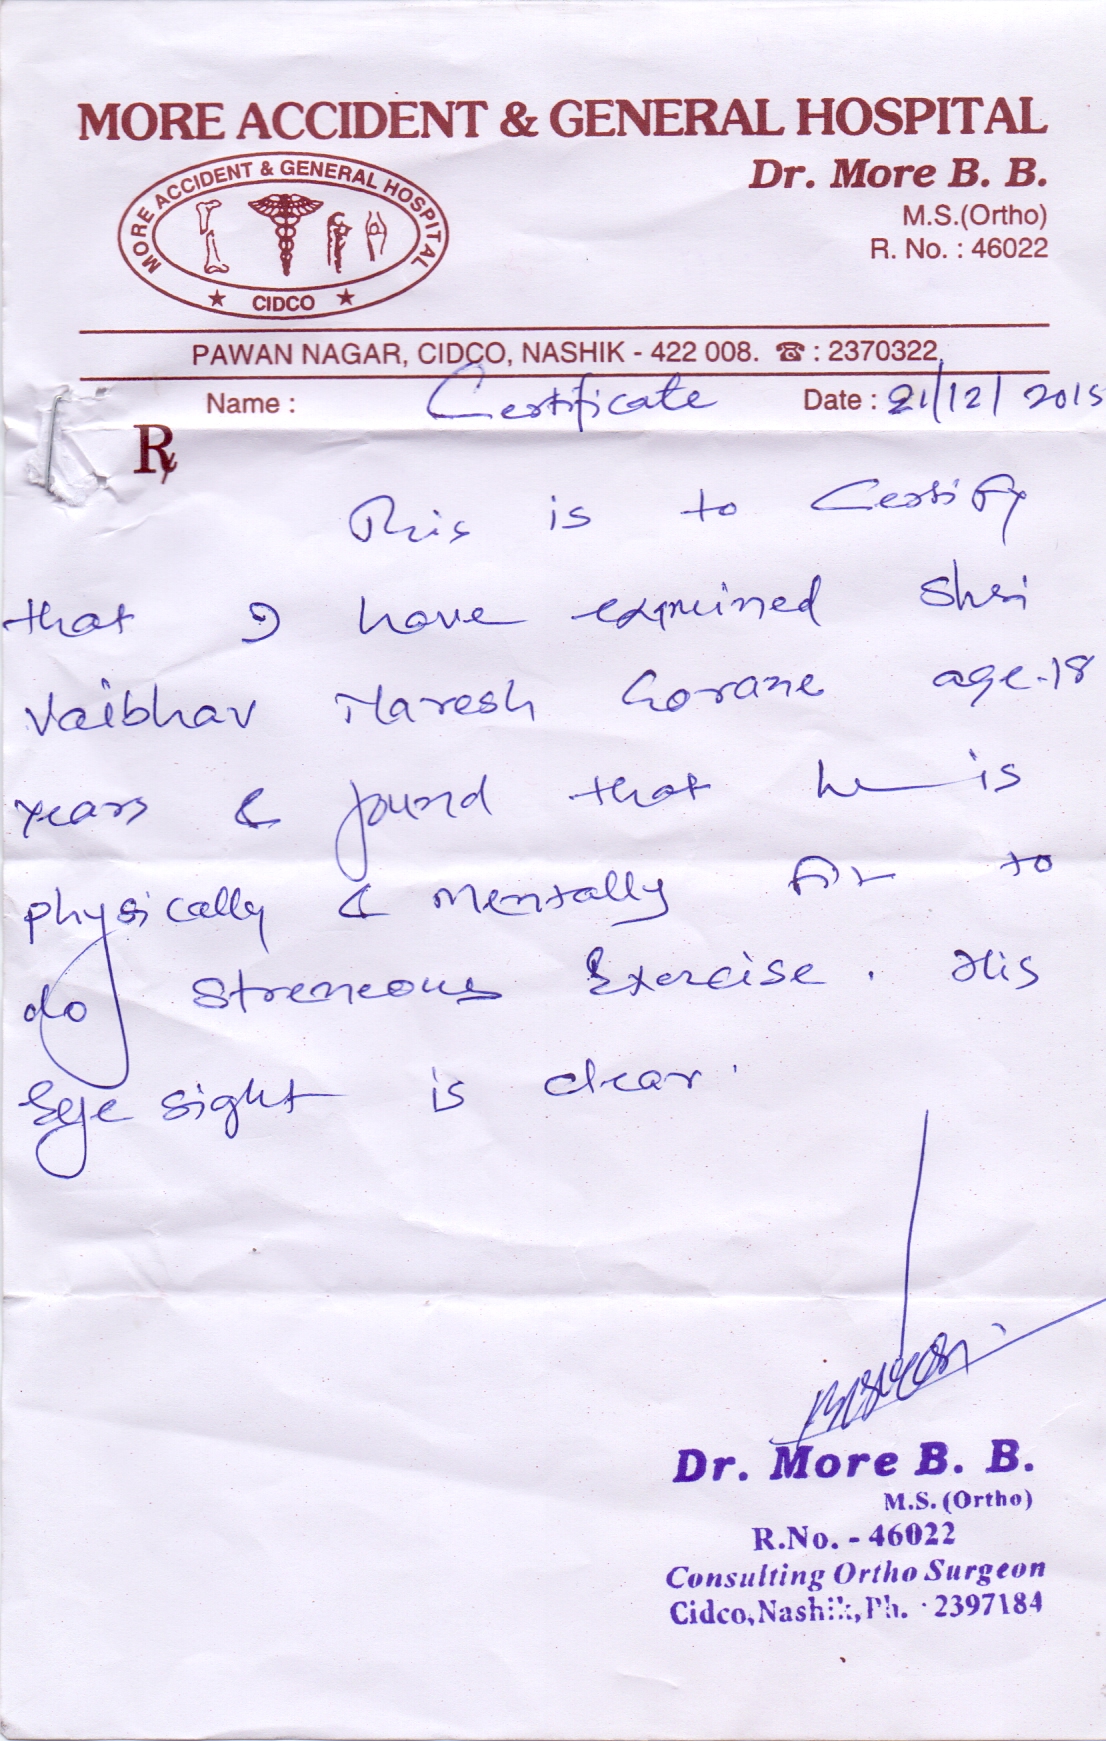 MORE ACCIDENT & GENERAL HOSPITAL
MORE ACCIDENT & GENERAL HOSPITAL
★ CIDCO ★
Dr. More B. B.
M.S.(Ortho)
R. No. : 46022
PAWAN NAGAR, CIDCO, NASHIK - 422 008. ☎ : 2370322
Name : Certificate Date : 21/12/2015
Rx
This is to Certify
that I have examined Shri
Vaibhav Naresh Gorane age-18
years & found that he is
physically & mentally fit to
do streneous Exercise. His
Eye sight is clear.
Dr. More B. B.
M.S.(Ortho)
R.No. - 46022
Consulting Ortho Surgeon
Cidco, Nashik, Ph. : 2397184